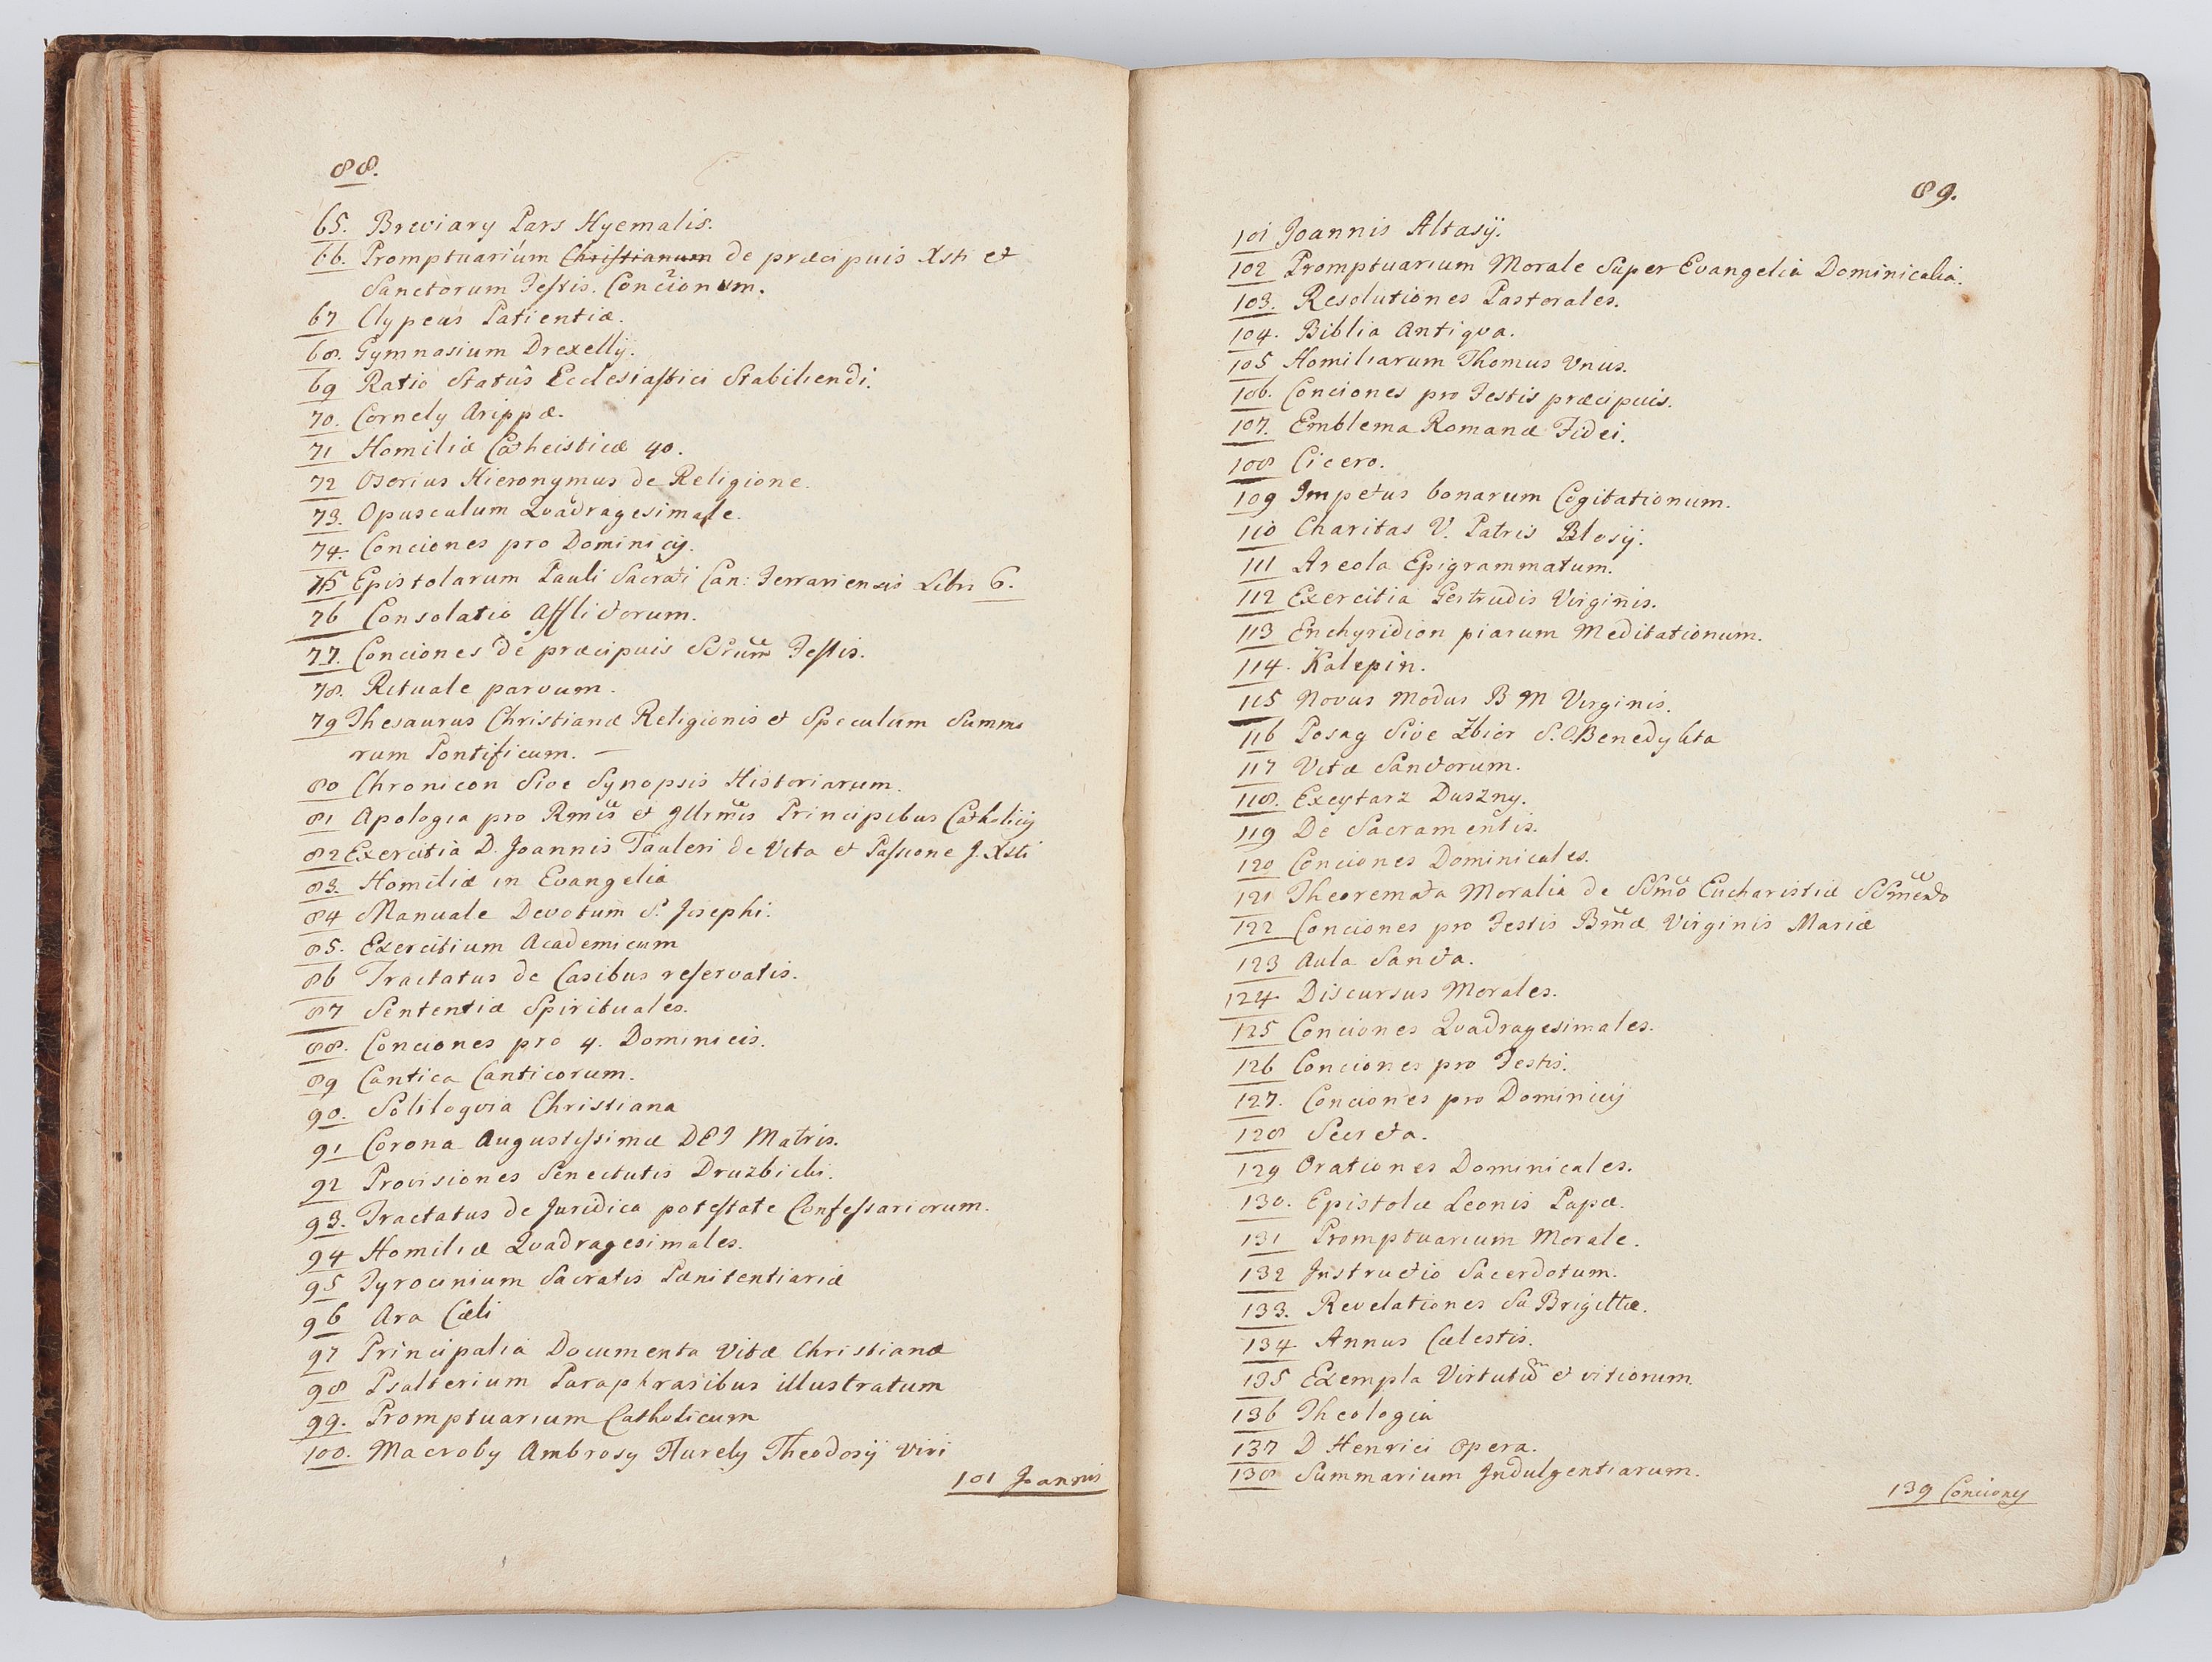 88.
65. Breviary Pars Hyemalis.
66. Promptuarium Christianum de præcipuis Xsti et
Sanctorum Festis. Concionum.
67 Clypeus Patientiæ.
68. Gymnasium Drexellÿ.
69 Ratio Statûs Ecclesiastici Stabiliendi.
70. Cornely Arippæ.
71 Homiliæ Catheisticæ 40.
72 Osorius Hieronymus de Religione.
73. Opusculum Qvadragesimale.
74. Conciones pro Dominicÿ.
75 Epistolarum Pauli Sacrati Can: Ferrariensis Libri 6.
76 Consolatio Afflictorum.
77. Conciones de præcipuis SSrum Festis.
78. Rituale parvum.
79 Thesaurus Christianæ Religionis et Speculum Summo
rum Pontificum. —
80 Chronicon Sive Synopsis Historiarum.
81 Apologia pro Rmis et Illrmis Principibus Catholicÿ
82 Exercitia D. Joannis Tauleri de Vita et Passione J. Xsti
83. Homiliæ in Evangelia
84 Manuale Devotum S. Josephi.
85. Exercitium Academicum
86 Tractatus de Casibus reservatis.
87 Sententiæ Spirituales.
88. Conciones pro 4. Dominicis.
89 Cantica Canticorum.
90. Soliloqvia Christiana
91 Corona Augustissimæ DEI Matris.
92 Provisiones Senectutis Druzbicki.
93. Tractatus de Juridica potestate Confessariorum.
94 Homiliæ Qvadragesimales.
95 Tyrocinium Sacratis Pænitentiariæ
96 Ara Cæli
97 Principalia Documenta Vitæ Christianæ
98 Psalterium Paraphrasibus illustratum
99. Promptuarium Catholicum
100. Macroby Ambrosy Aurely Theodosÿ Viri
101 Joannis
89.
101 Joannis Altasÿ.
102 Promptuarium Morale Super Evangelia Dominicalia.
103. Resolutiones Pastorales.
104. Biblia Antiqva.
105 Homiliarum Thomus Unus.
106. Conciones pro Festis præcipuis.
107. Emblema Romanæ Fidei.
108 Cicero.
109 Impetus bonarum Cogitationum.
110 Charitas V. Patris Blosÿ.
111 Areola Epigrammatum.
112 Exercitia Gertrudis Virginis.
113 Enchyridion piarum Meditationum.
114. Kalepin.
115 Novus Modus B M Virginis.
116 Posag Sive Zbior S. O. Benedykta
117 Vitæ Sanctorum.
118. Exeytarz Duszny.
119 De Sacramentis.
120 Conciones Dominicales.
121 Theoremata Moralia de SSmo Eucharistiæ SSmento
122 Conciones pro Festis Bmæ Virginis Mariæ
123 Aula Sancta.
124 Discursus Morales.
125 Conciones Qvadragesimales.
126 Conciones pro Festis.
127. Conciones pro Dominicÿ
128 Secreta.
129 Orationes Dominicales.
130. Epistolæ Leonis Papæ.
131 Promptuarium Morale.
132 Instructio Sacerdotum.
133. Revelationes Sa Brigittæ.
134 Annus Cælestis.
135 Exempla Virtutum et vitiorum.
136 Theologia
137 D Henrici Opera.
138 Summarium Indulgentiarum.
139 Conciony